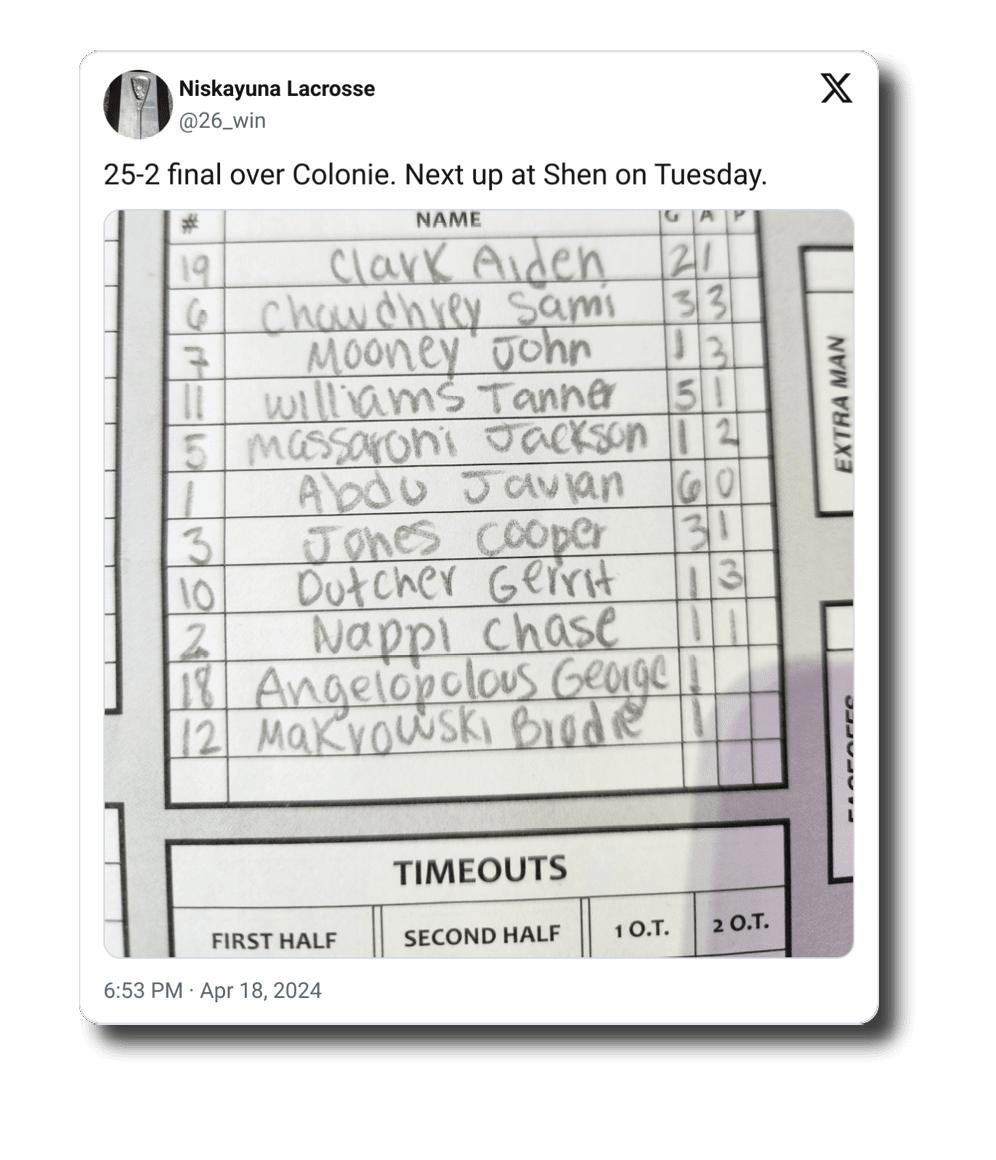 Niskayuna Lacrosse
@26_win
25-2 final over Colonie. Next up at Shen on Tuesday.
# NAME G A P
19 Clark Aiden 2 1
6 Chawdhrey Sami 3 3
7 Mooney John 1 3
11 Williams Tanner 5 1
5 Massaroni Jackson 1 2
1 Abdu Javian 6 0
3 Jones Cooper 3 1
10 Dutcher Gerrit 1 3
2 Nappi Chase 1 1
18 Angelopolous George 1
12 Makrowski Brodie 1
EXTRA MAN
FACEOFFS
TIMEOUTS
FIRST HALF SECOND HALF 1 O.T. 2 O.T.
6:53 PM · Apr 18, 2024